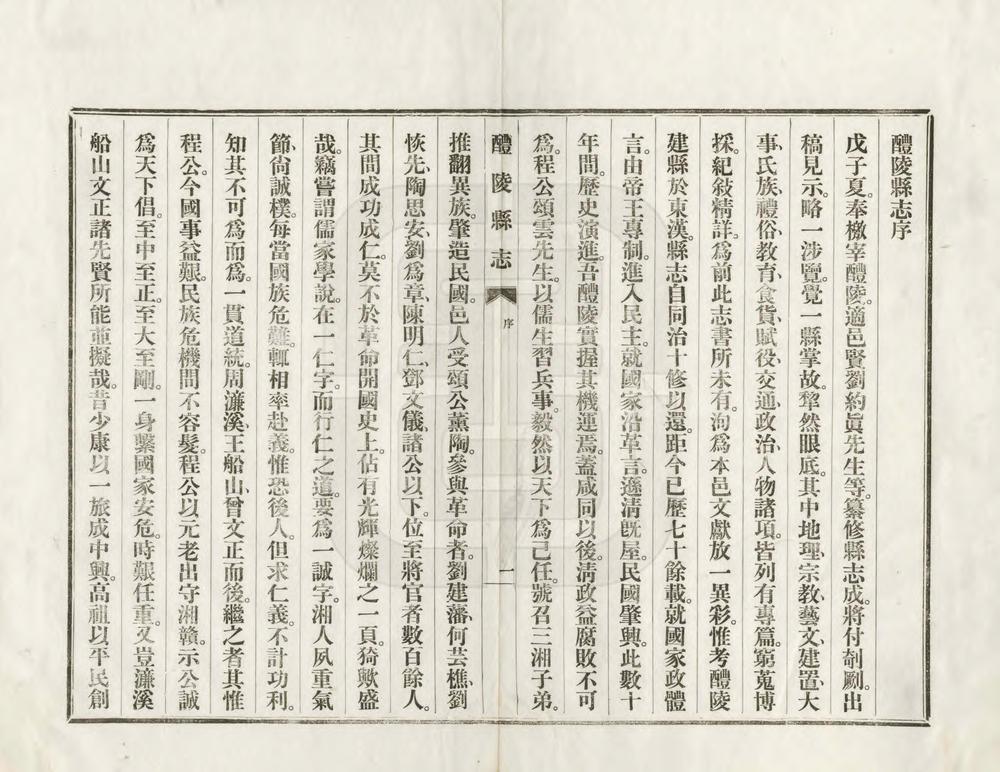 醴陵縣志序
戊子夏。奉檄宰醴陵。適邑賢劉約眞先生等。纂修縣志成。將付剞劂。出
稿見示。略一涉覽。覺一縣掌故。犂然眼底。其中地理、宗教、藝文、建置、大
事、氏族、禮俗、教育、食貨、賦役、交通、政治、人物諸項。皆列有專篇。窮蒐博
採。紀敍精詳。爲前此志書所未有。洵爲本邑文獻放一異彩。惟考醴陵
建縣於東漢。縣志自同治十修以還。距今已歷七十餘載。就國家政體
言。由帝王專制。進入民主。就國家沿革言。遜清旣屋。民國肇興。此數十
年間。歷史演進。吾醴陵實握其機運焉。蓋咸同以後。淸政益腐敗不可
爲。程公頌雲先生。以儒生習兵事。毅然以天下爲己任。號召三湘子弟。
醴陵縣志 序 一
推翻異族。肇造民國。邑人受頌公薰陶。參與革命者。劉建藩、何芸樵、劉
恢先、陶思安、劉爲章、陳明仁、鄧文儀、諸公以下。位至將官者數百餘人。
其間成功成仁。莫不於革命開國史上。佔有光輝燦爛之一頁。猗歟盛
哉。竊嘗謂儒家學說。在一仁字。而行仁之道。要爲一誠字。湘人夙重氣
節。尙誠樸。每當國族危難。輒相率赴義。惟恐後人。但求仁義。不計功利。
知其不可爲而爲。一貫道統。周濂溪、王船山、曾文正而後。繼之者其惟
程公。今國事益艱。民族危機間不容髮。程公以元老出守湘贛。示公誠
爲天下倡。至中至正。至大至剛。一身繫國家安危。時艱任重。又豈濂溪
船山文正諸先賢所能並擬哉。昔少康以一旅成中興。高祖以平民創